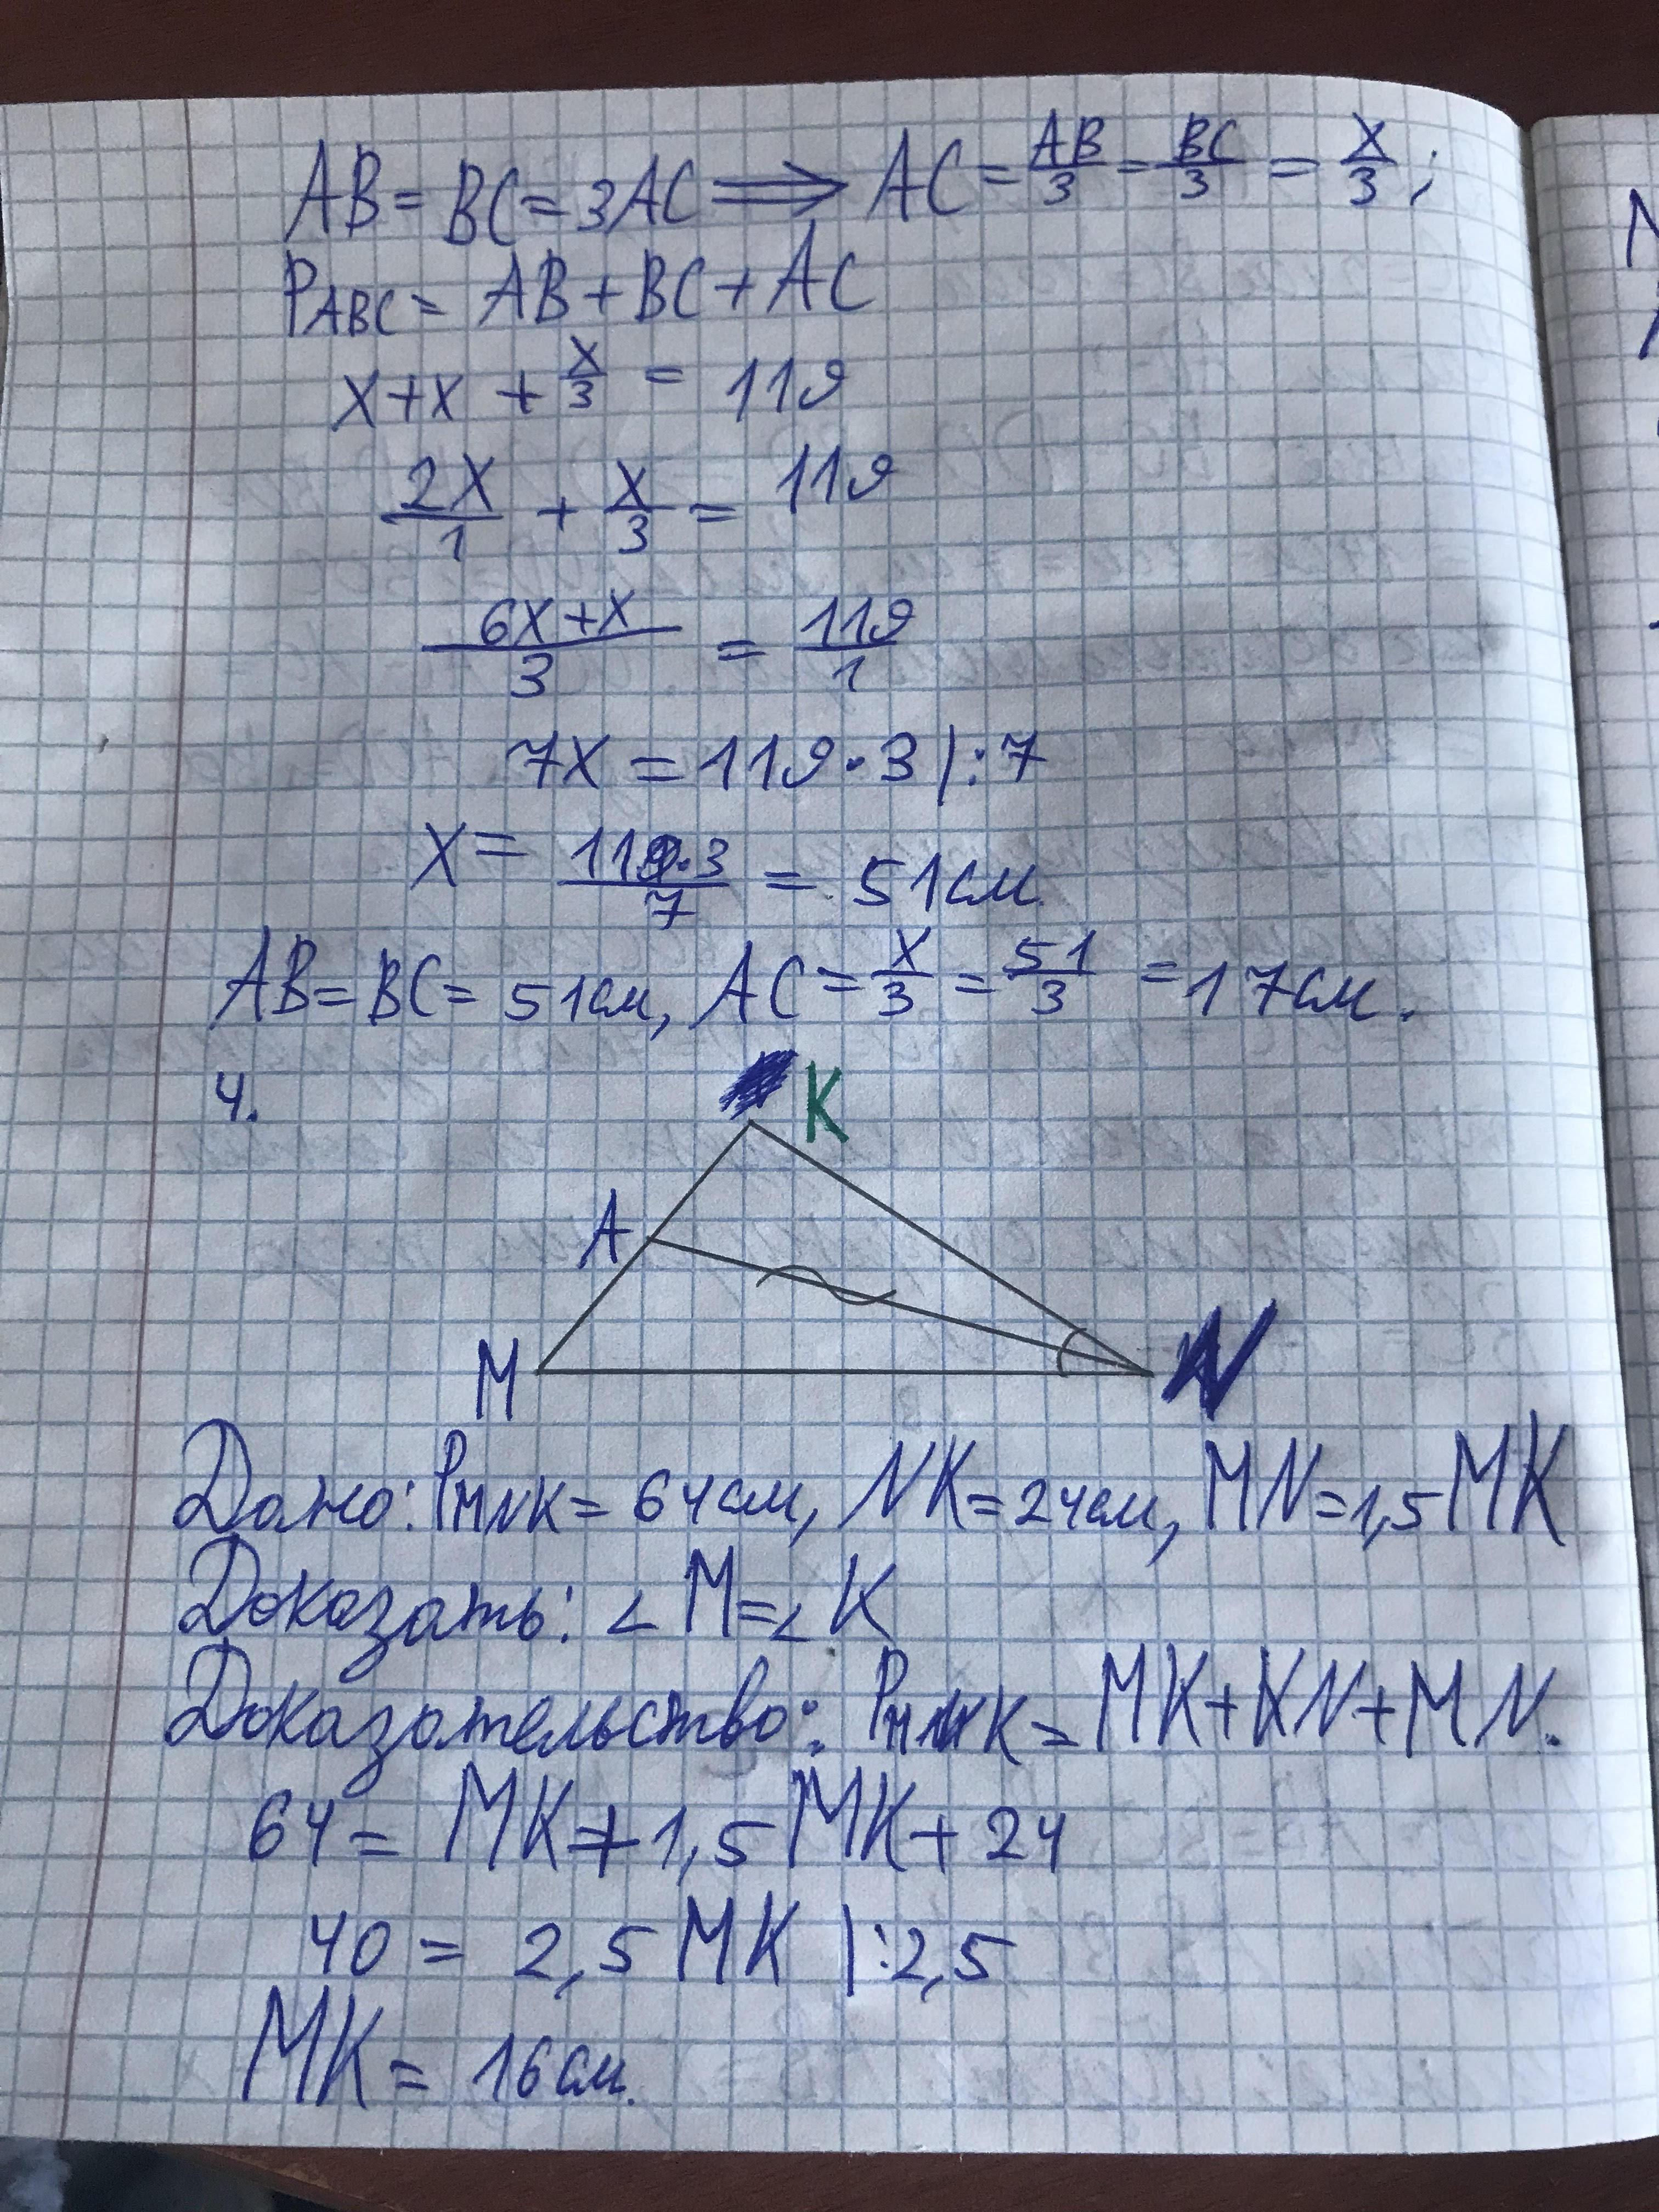 AB = BC = 3AC ⟹ AC = AB/3 = BC/3 = x/3;
P ABC = AB + BC + AC
x + x + x/3 = 119
2x/1 + x/3 = 119
(6x + x)/3 = 119/1
7x = 119 · 3 | : 7
x = (119 · 3)/7 = 51 см.
AB = BC = 51 см, AC = x/3 = 51/3 = 17 см.
4.
K
A
M N
Дано: P MNK = 64 см, NK = 24 см, MN = 1,5 MK
Доказать: ∠ M = ∠ K
Доказательство: P MNK = MK + KN + MN.
64 = MK + 1,5 MK + 24
40 = 2,5 MK | : 2,5
MK = 16 см.